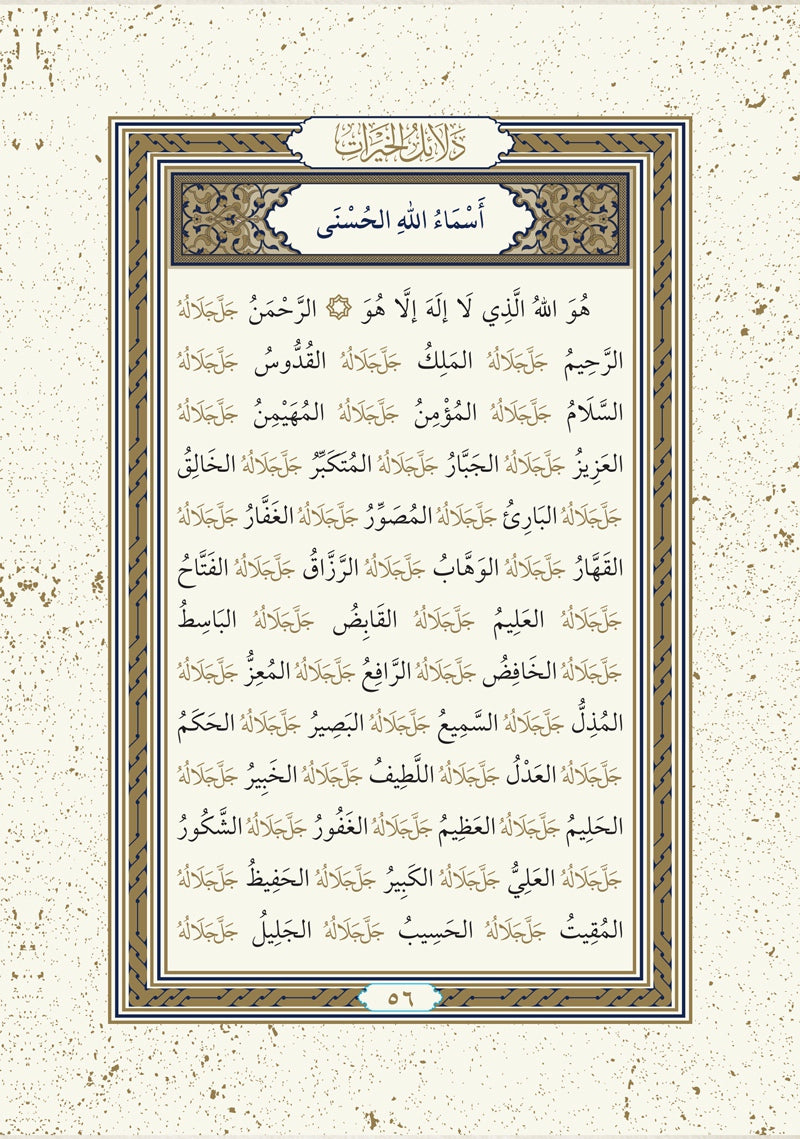 دَلَائِلُ الْخَيْرَاتِ
أَسْمَاءُ اللهِ الحُسْنَى
هُوَ اللهُ الَّذِي لَا إِلَهَ إِلَّا هُوَ ۞ الرَّحْمَنُ جَلَّ جَلَالُهُ
الرَّحِيمُ جَلَّ جَلَالُهُ المَلِكُ جَلَّ جَلَالُهُ القُدُّوسُ جَلَّ جَلَالُهُ
السَّلَامُ جَلَّ جَلَالُهُ المُؤْمِنُ جَلَّ جَلَالُهُ المُهَيْمِنُ جَلَّ جَلَالُهُ
العَزِيزُ جَلَّ جَلَالُهُ الجَبَّارُ جَلَّ جَلَالُهُ المُتَكَبِّرُ جَلَّ جَلَالُهُ الخَالِقُ
جَلَّ جَلَالُهُ البَارِئُ جَلَّ جَلَالُهُ المُصَوِّرُ جَلَّ جَلَالُهُ الغَفَّارُ جَلَّ جَلَالُهُ
القَهَّارُ جَلَّ جَلَالُهُ الوَهَّابُ جَلَّ جَلَالُهُ الرَّزَّاقُ جَلَّ جَلَالُهُ الفَتَّاحُ
جَلَّ جَلَالُهُ العَلِيمُ جَلَّ جَلَالُهُ القَابِضُ جَلَّ جَلَالُهُ البَاسِطُ
جَلَّ جَلَالُهُ الخَافِضُ جَلَّ جَلَالُهُ الرَّافِعُ جَلَّ جَلَالُهُ المُعِزُّ جَلَّ جَلَالُهُ
المُذِلُّ جَلَّ جَلَالُهُ السَّمِيعُ جَلَّ جَلَالُهُ البَصِيرُ جَلَّ جَلَالُهُ الحَكَمُ
جَلَّ جَلَالُهُ العَدْلُ جَلَّ جَلَالُهُ اللَّطِيفُ جَلَّ جَلَالُهُ الخَبِيرُ جَلَّ جَلَالُهُ
الحَلِيمُ جَلَّ جَلَالُهُ العَظِيمُ جَلَّ جَلَالُهُ الغَفُورُ جَلَّ جَلَالُهُ الشَّكُورُ
جَلَّ جَلَالُهُ العَلِيُّ جَلَّ جَلَالُهُ الكَبِيرُ جَلَّ جَلَالُهُ الحَفِيظُ جَلَّ جَلَالُهُ
المُقِيتُ جَلَّ جَلَالُهُ الحَسِيبُ جَلَّ جَلَالُهُ الجَلِيلُ جَلَّ جَلَالُهُ
٥٦